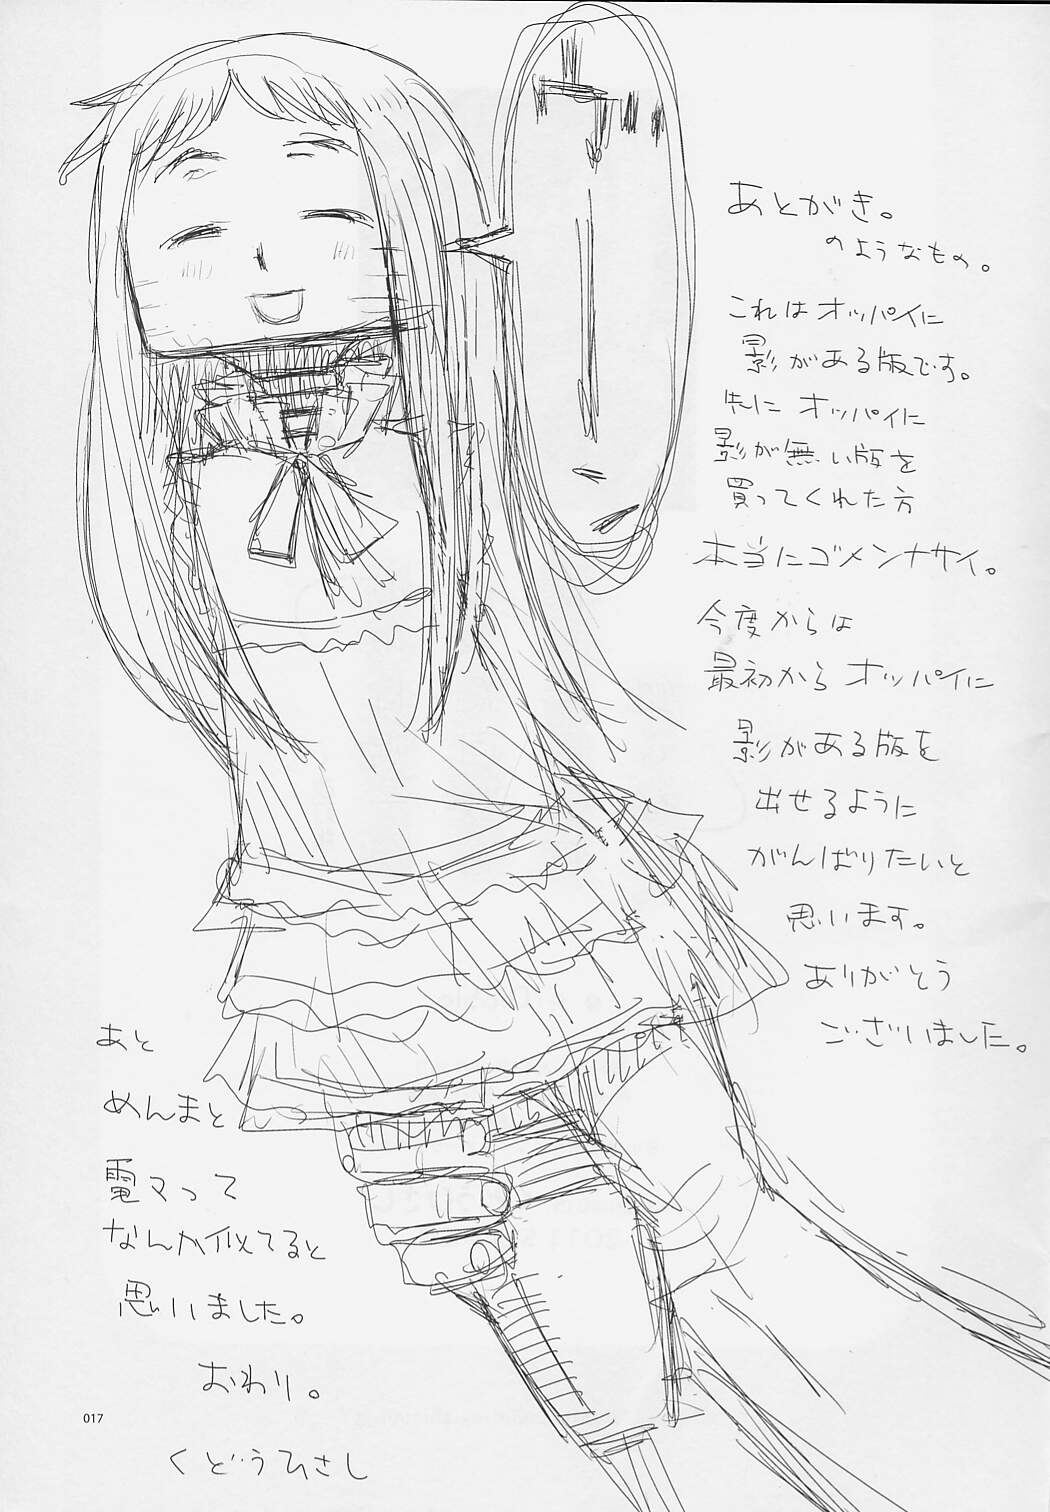 あとがき。
のようなもの。
これはオッパイに
影がある版です。
先に オッパイに
影が無い版を
買ってくれた方
本当にゴメンナサイ。
今度からは
最初から オッパイに
影がある版を
出せるように
がんばりたいと
思います。
ありがとう
ございました。
あと
めんまと
電マって
なんか似てると
思いました。
おわり。
くどうひさし
017